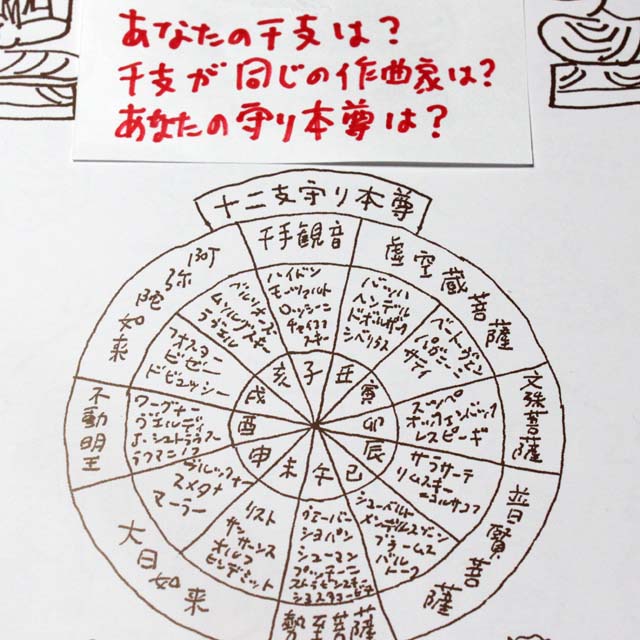 あなたの干支は?
干支が同じの作曲家は?
あなたの守り本尊は?
十二支守り本尊
千手観音
虚空蔵菩薩
文殊菩薩
普賢菩薩
勢至菩薩
大日如来
不動明王
阿弥陀如来
ハイドン
モーツァルト
ロッシーニ
チャイコフ
スキー
バッハ
ヘンデル
ドボルザーク
シベリウス
ベートーヴェン
パガニーニ
サティ
スッペ
オッフェンバック
レスピーギ
サラサーテ
リムスキー
=コルサコフ
シューベルト
メンデルスゾーン
ブラームス
バルトーク
ヴェーバー
ショパン
シューマン
プッチーニ
ストラヴィンスキー
ショスタコービチ
リスト
サンサーンス
オルフ
ヒンデミット
ブルックナー
スメタナ
マーラー
ワーグナー
ヴェルディ
J・シュトラウス
ラフマニノフ
フォスター
ビゼー
ドビュッシー
ベルリオーズ
ムソルグスキー
ラヴェル
子
丑
寅
卯
辰
巳
午
未
申
酉
戌
亥